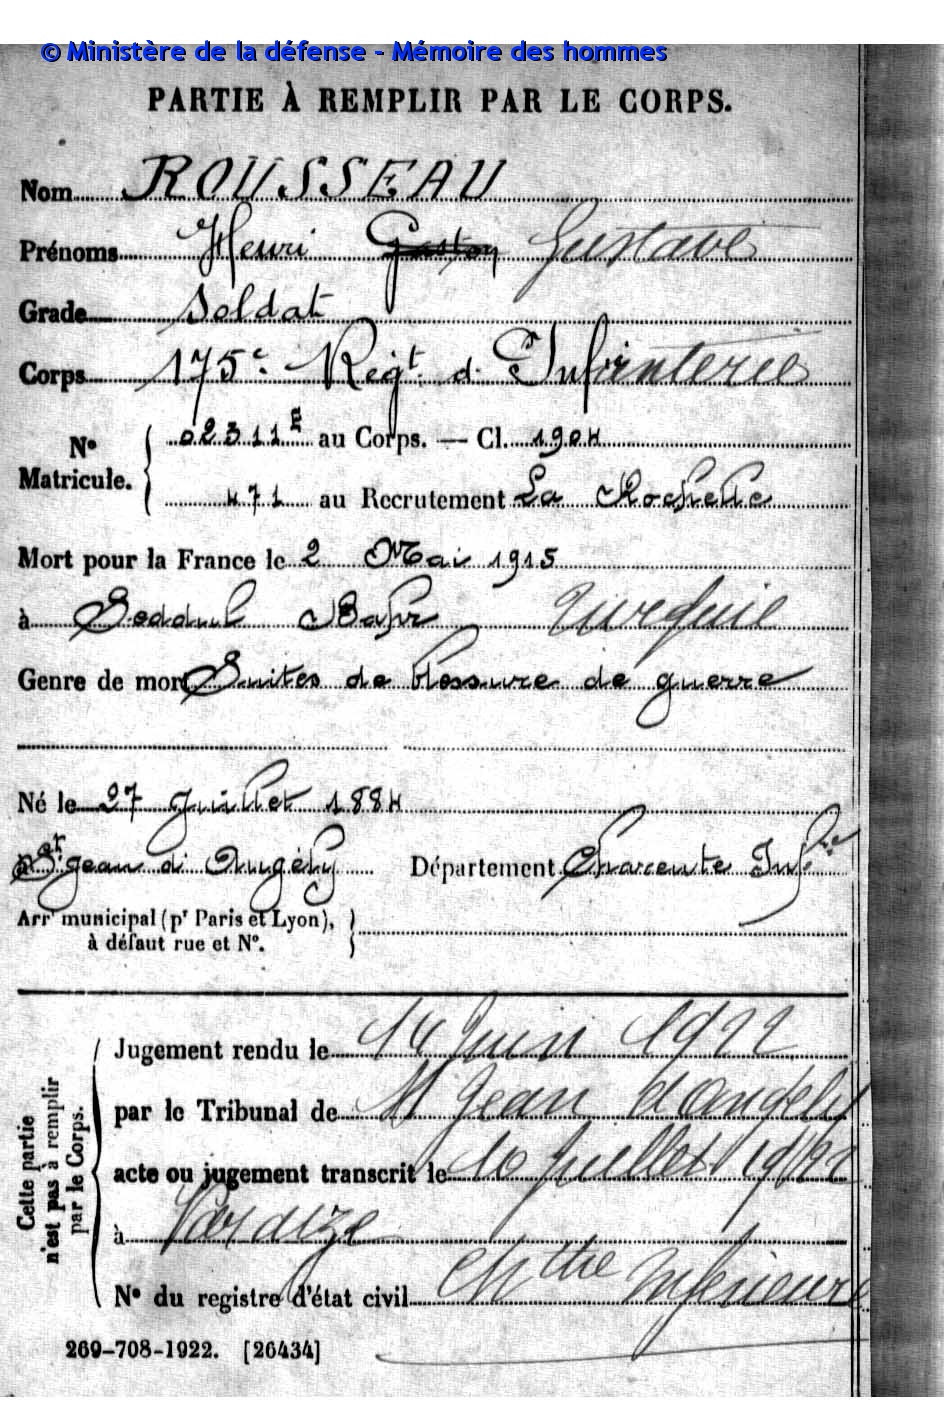 © Ministère de la défense - Mémoire des hommes
PARTIE À REMPLIR PAR LE CORPS.
Nom ROUSSEAU
Prénoms Henri Gaston Gustave
Grade Soldat
Corps 175e Régt d'Infanterie
N° Matricule. 02311E au Corps. — Cl. 1904
471 au Recrutement La Rochelle
Mort pour la France le 2 Mai 1915
à Seddul Bahr Turquie
Genre de mort Suites de blessure de guerre
Né le 27 Juillet 1884
à St Jean d'Angély Département Charente Infre
Arrt municipal (pr Paris et Lyon),
à défaut rue et N°.
Cette partie
n'est pas à remplir
par le Corps.
Jugement rendu le 14 Juin 1922
par le Tribunal de St Jean d'Angely
acte ou jugement transcrit le 10 Juillet 1922
à Varaize
N° du registre d'état civil Chtte Inférieure
269-708-1922. [26434]